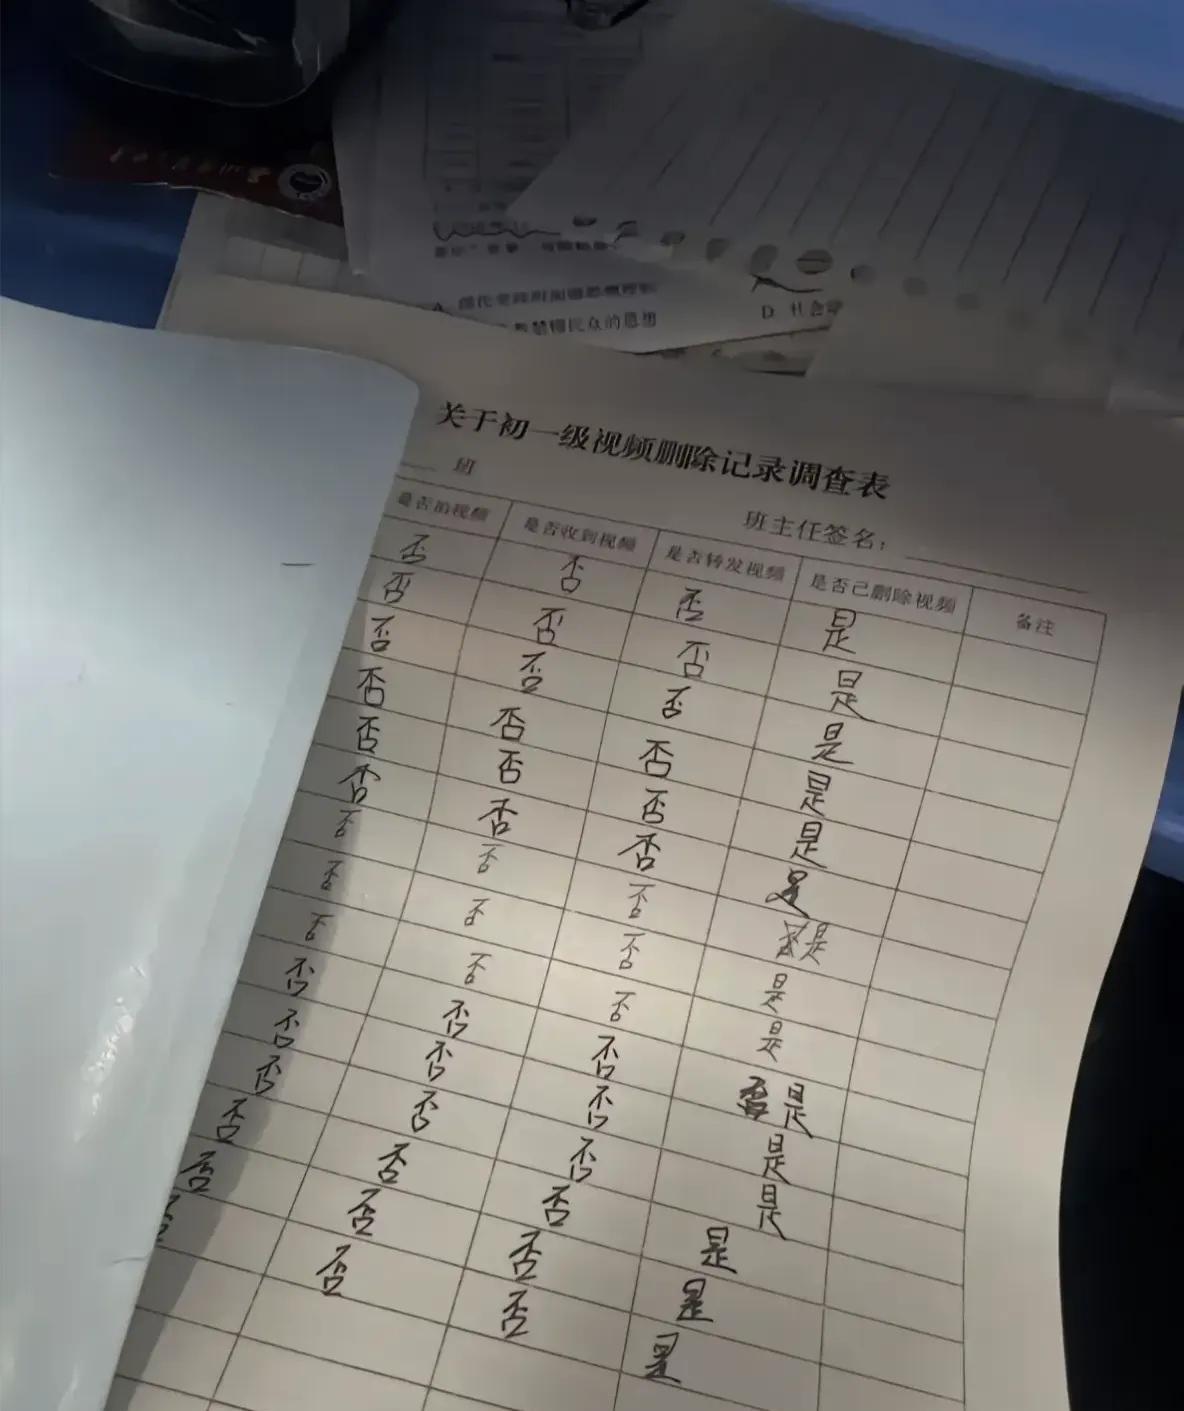 民众的思想
D 社会
关于初一级视频删除记录调查表
班
班主任签名：
是否拍视频 是否收到视频 是否转发视频 是否已删除视频 备注
否 否 否 是
否 否 否 是
否 否 否 是
否 否 否 是
否 否 否 是
否 否 否 是
否 否 否 是
否 否 否 是
否 否 否 是
否 否 否 是
否 否 否 是
否 否 否 是
否 否 否 是
否 否 否 是
否 否 是